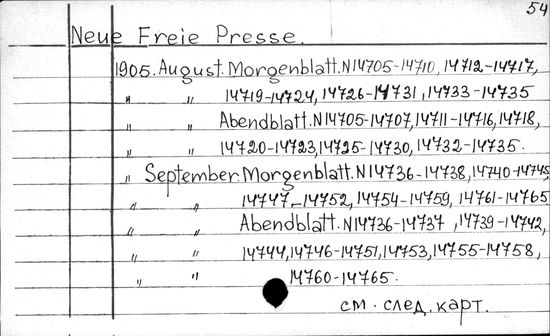 54
Neue Freie Presse.
1905. August. Morgenblatt. N14705-14710, 14712-14717,
" " 14719-14724, 14726-14731, 14733-14735
" " Abendblatt. N14705-14707, 14711-14716, 14718,
" " 14720-14723, 14725-14730, 14732-14735.
" September. Morgenblatt. N14736-14738, 14740-14745,
" " 14747-14752, 14754-14759, 14761-14765
" " Abendblatt. N14736-14737, 14739-14742,
" " 14744, 14746-14751, 14753, 14755-14758,
" " 14760-14765.
см. след. карт.